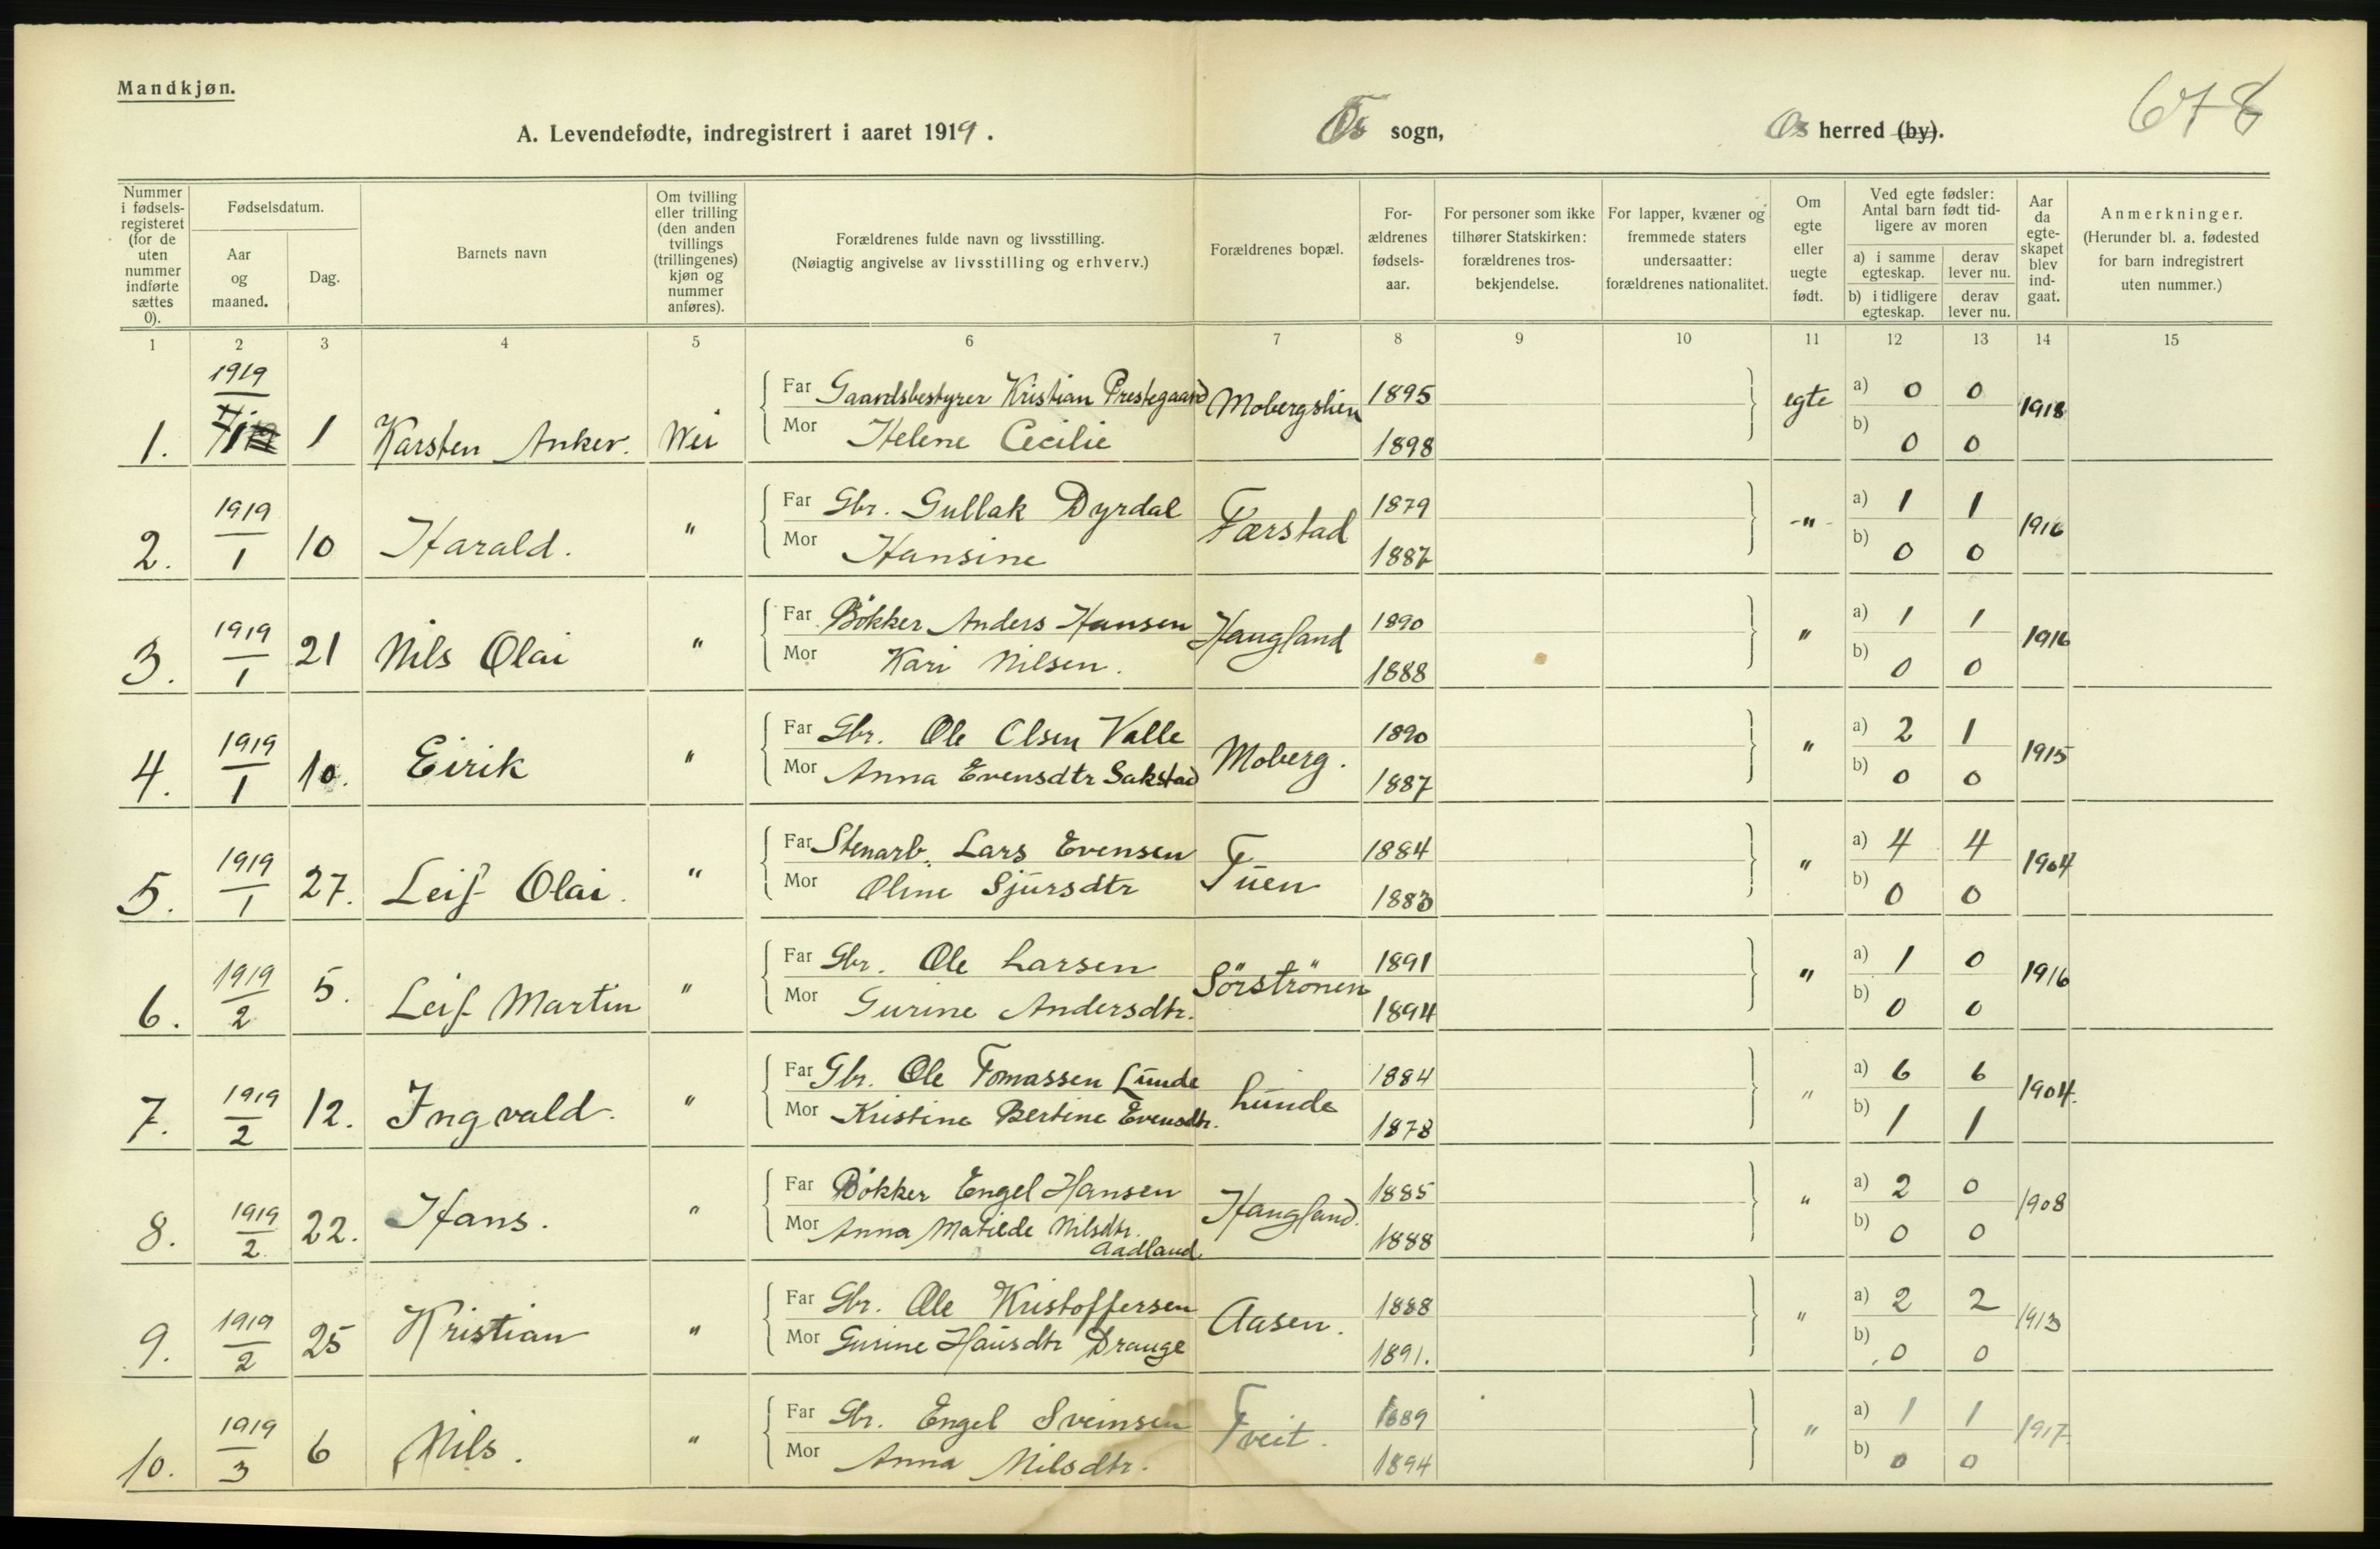 Mandkjøn.
678
A. Levendefødte, indregistrert i aaret 1919.
Os sogn,
Os herred (by).
Nummer i fødselsregisteret (for de uten nummer indførte sættes 0).
Fødselsdatum.
Aar og maaned.
Dag.
Barnets navn
Om tvilling eller trilling (den anden tvillings (trillingenes) kjøn og nummer anføres).
Forældrenes fulde navn og livsstilling.
(Nøiagtig angivelse av livsstilling og erhverv.)
Forældrenes bopæl.
Forældrenes fødselsaar.
For personer som ikke tilhører Statskirken: forældrenes trosbekjendelse.
For lapper, kvæner og fremmede staters undersaatter: forældrenes nationalitet.
Om egte eller uegte født.
Ved egte fødsler: Antal barn født tidligere av moren
a) i samme egteskap.
derav lever nu.
b) i tidligere egteskap.
derav lever nu.
Aar da egteskapet blev indgaat.
Anmerkninger.
(Herunder bl. a. fødested for barn indregistrert uten nummer.)
1 2 3 4 5 6 7 8 9 10 11 12 13 14 15
1. 1919 1 1 Karsten Anker. Nei Far Gaardsbestyrer Kristian Prestegaard Mobergslien 1895 egte a) 0 0 1918
Mor Helene Cecilie 1898 b) 0 0
2. 1919 1 10 Harald. " Far Gbr. Gullak Dyrdal Færstad 1879 -"- a) 1 1 1916
Mor Hansine 1887 b) 0 0
3. 1919 1 21 Nils Olai " Far Bökker Anders Hansen Haugland 1890 " a) 1 1 1916
Mor Kari Nilsen. 1888 b) 0 0
4. 1919 1 10. Eirik " Far Gbr. Ole Olsen Valle Moberg. 1890 " a) 2 1 1915
Mor Anna Evensdtr Sakstad 1887 b) 0 0
5. 1919 1 27. Leif Olai. " Far Stenarb. Lars Evensen Tuen 1884 " a) 4 4 1904
Mor Oline Sjursdtr 1883 b) 0 0
6. 1919 2 5. Leif Martin " Far Gbr. Ole Larsen Sörströnen 1891 " a) 1 0 1916
Mor Gurine Andersdtr. 1894 b) 0 0
7. 1919 2 12. Ingvald. " Far Gbr. Ole Tomassen Lunde Lunde 1884 " a) 6 6 1904.
Mor Kristine Bertine Evensdtr. 1878 b) 1 1
8. 1919 2 22. Hans. " Far Bökker Engel Hansen Haugland. 1885 " a) 2 0 1908
Mor Anna Matilde Nilsdtr. Aadland 1888 b) 0 0
9. 1919 2 25 Kristian " Far Gbr. Ole Kristoffersen Aasen. 1888 " a) 2 2 1913
Mor Gurine Hansdtr Drange 1891. b) 0 0
10. 1919 3 6 Nils. " Far Gbr. Engel Sveinsen Tveit. 1889 " a) 1 1 1917
Mor Anna Nilsdtr. 1894 b) 0 0